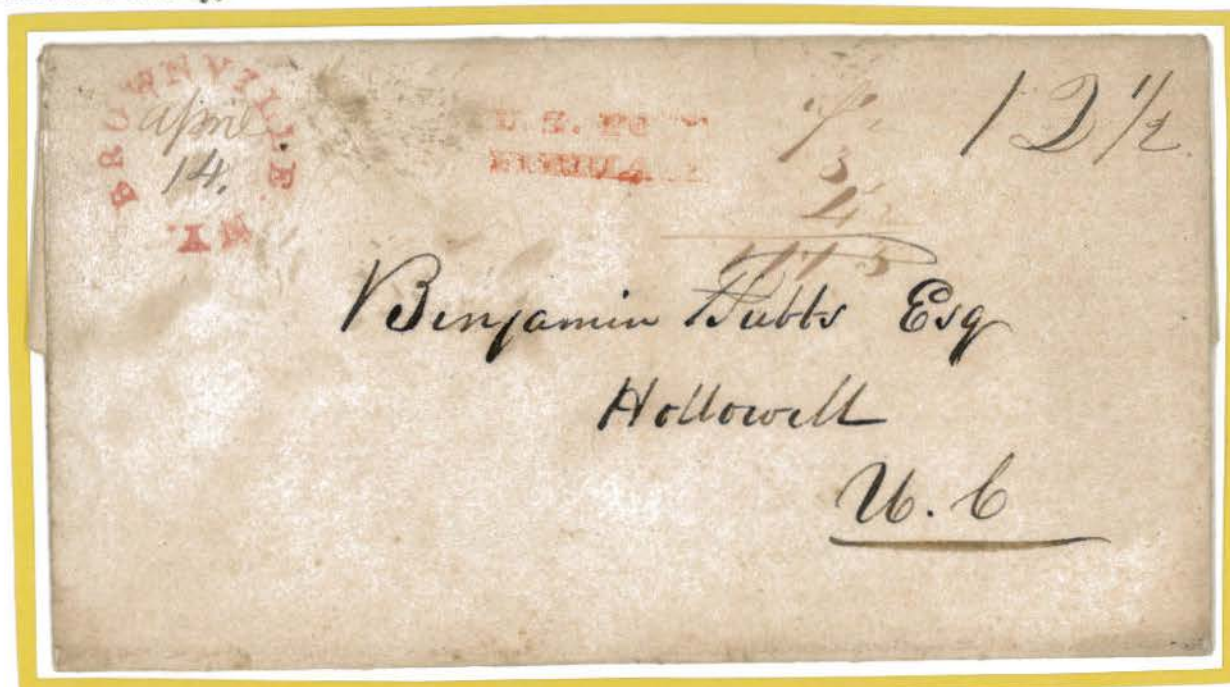 BROWNVILLE.
April
14.
N.Y.
U.S.
12 1/2
3
Benjamin Tubbs Esq
Hollowell
U. C